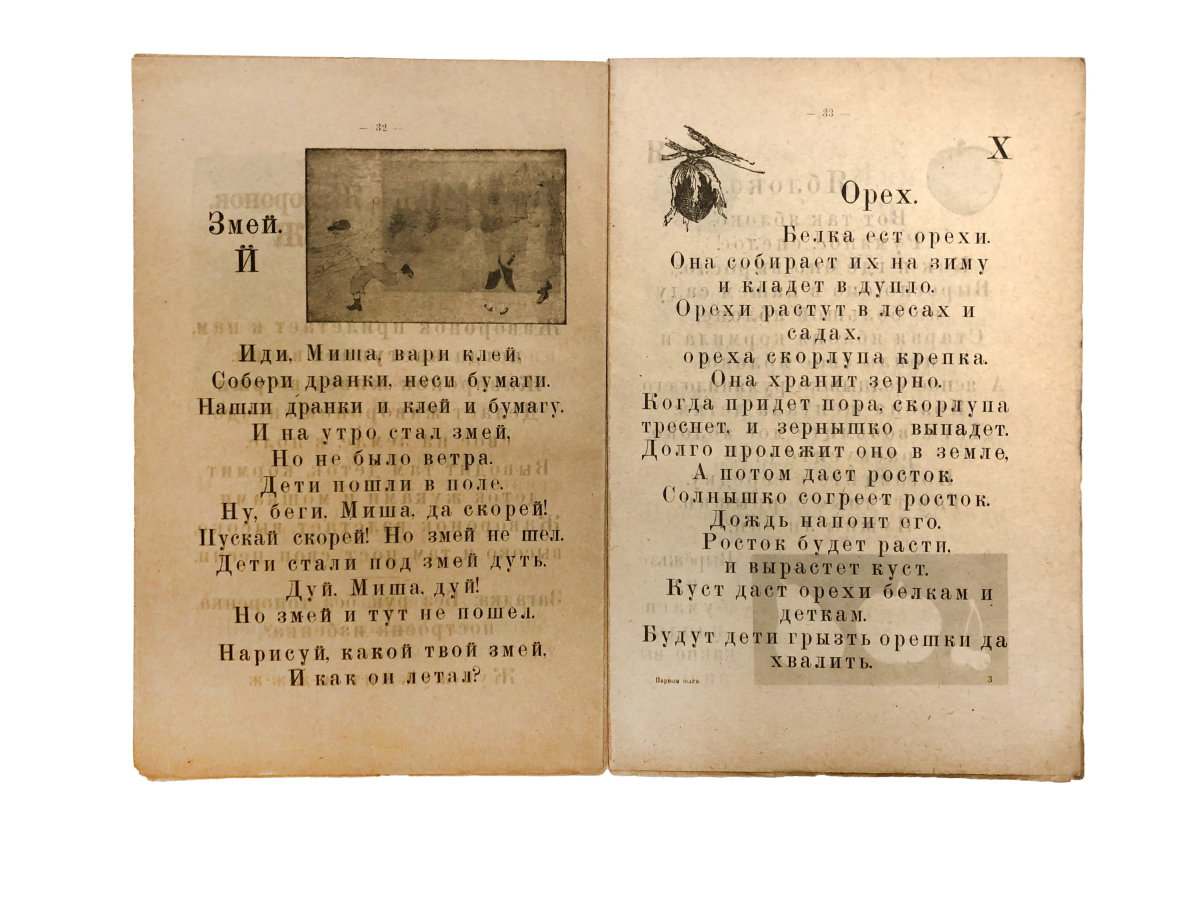 — 32 —
Змей.
Й
Иди, Миша, вари клей,
Собери дранки, неси бумаги.
Нашли дранки и клей и бумагу.
И на утро стал змей,
Но не было ветра.
Дети пошли в поле.
Ну, беги, Миша, да скорей!
Пускай скорей! Но змей не шел.
Дети стали под змей дуть.
Дуй, Миша, дуй!
Но змей и тут не пошел.
Нарисуй, какой твой змей,
И как он летал?
— 33 —
Х
Орех.
Белка ест орехи.
Она собирает их на зиму
и кладет в дупло.
Орехи растут в лесах и
садах.
ореха скорлупа крепка.
Она хранит зерно.
Когда придет пора, скорлупа
треснет, и зернышко выпадет.
Долго пролежит оно в земле,
А потом даст росток.
Солнышко согреет росток.
Дождь напоит его.
Росток будет расти,
и вырастет куст.
Куст даст орехи белкам и
деткам.
Будут дети грызть орешки да
хвалить.
3